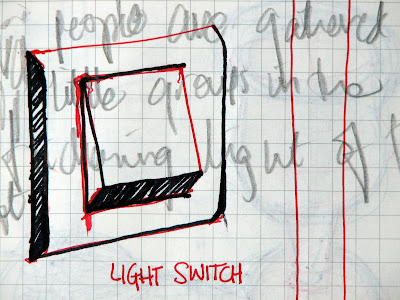 people are gathered
little groups in the
light of
LIGHT SWITCH